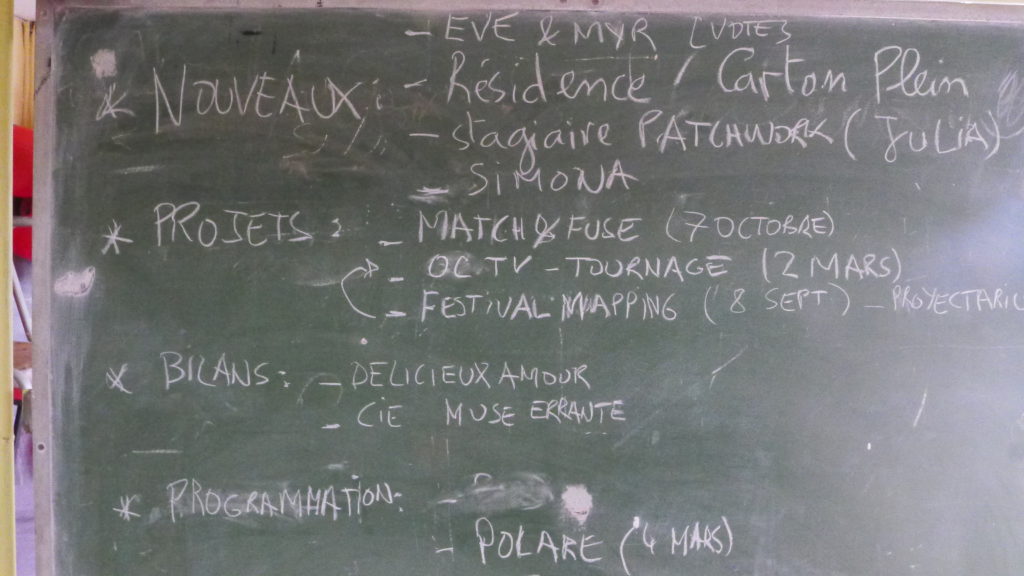 - EVE & MYR [VOTE]
* NOUVEAUX: - Résidence / Carton Plein
- stagiaire PATCHWORK (JULIA)
- SIMONA
* PROJETS: - MATCH & FUSE (7 OCTOBRE)
- OC TV - TOURNAGE (2 MARS)
- FESTIVAL MAPPING (8 SEPT) -
* BILANS: - DELICIEUX AMOUR
- CIE MUSE ERRANTE
* PROGRAMMATION:
- POLARE (4 MARS)